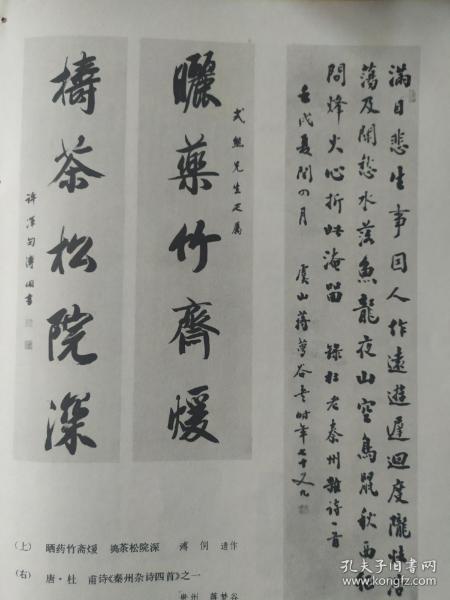 滿目悲生事因人作遠遊遲迴度隴怯浩
蕩及關愁水落魚龍夜山空鳥鼠秋西征
問烽火心折此淹留 錄杜老秦州雜詩一首
壬戌夏閏四月 虞山蔣夢谷書時年七十又九
先生疋屬
曬藥竹齋煖
擣茶松院深
許渾句溥侗書
(上) 晒药竹斋煖 搗茶松院深 溥 侗 遗作
(右) 唐·杜 甫诗《秦州杂诗四首》之一
常州 蒋梦谷
孔夫子旧书网